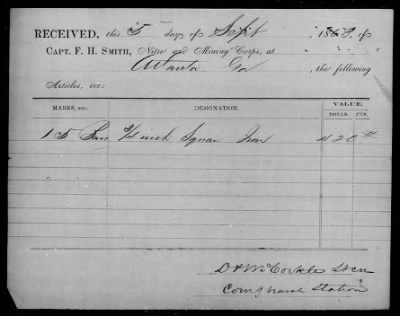 RECEIVED, this 5 day of Sept 1863, of
CAPT. F. H. SMITH, Nitre and Mining Corps, at
Atlanta Ga, the following
Articles, viz:
MARKS, &c. DESIGNATION. VALUE.
DOLLS. CTS.
15 Bars inch Square Iron 420
D McCorkle
Naval Station